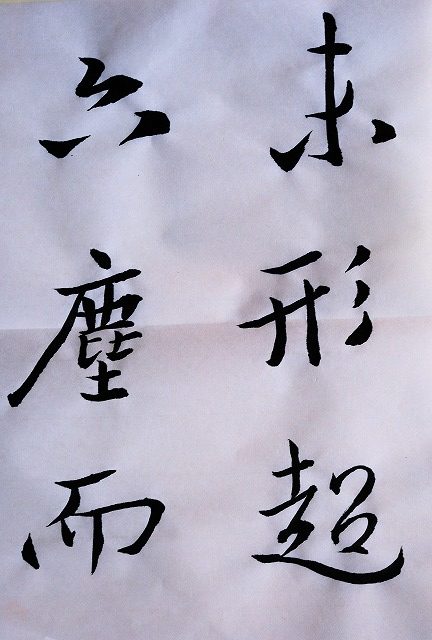 未形超
六塵而